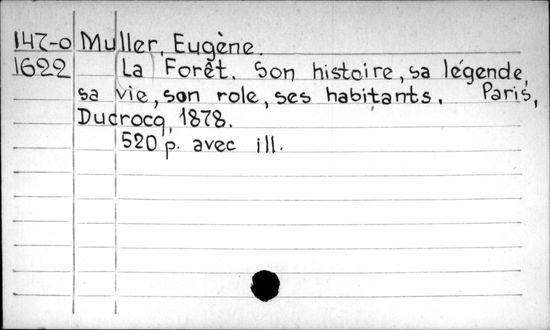 147-0 Muller, Eugène.
1622 La Forêt. Son histoire, sa légende,
sa vie, son role, ses habitants. Paris,
Ducrocq, 1878.
520 p. avec ill.